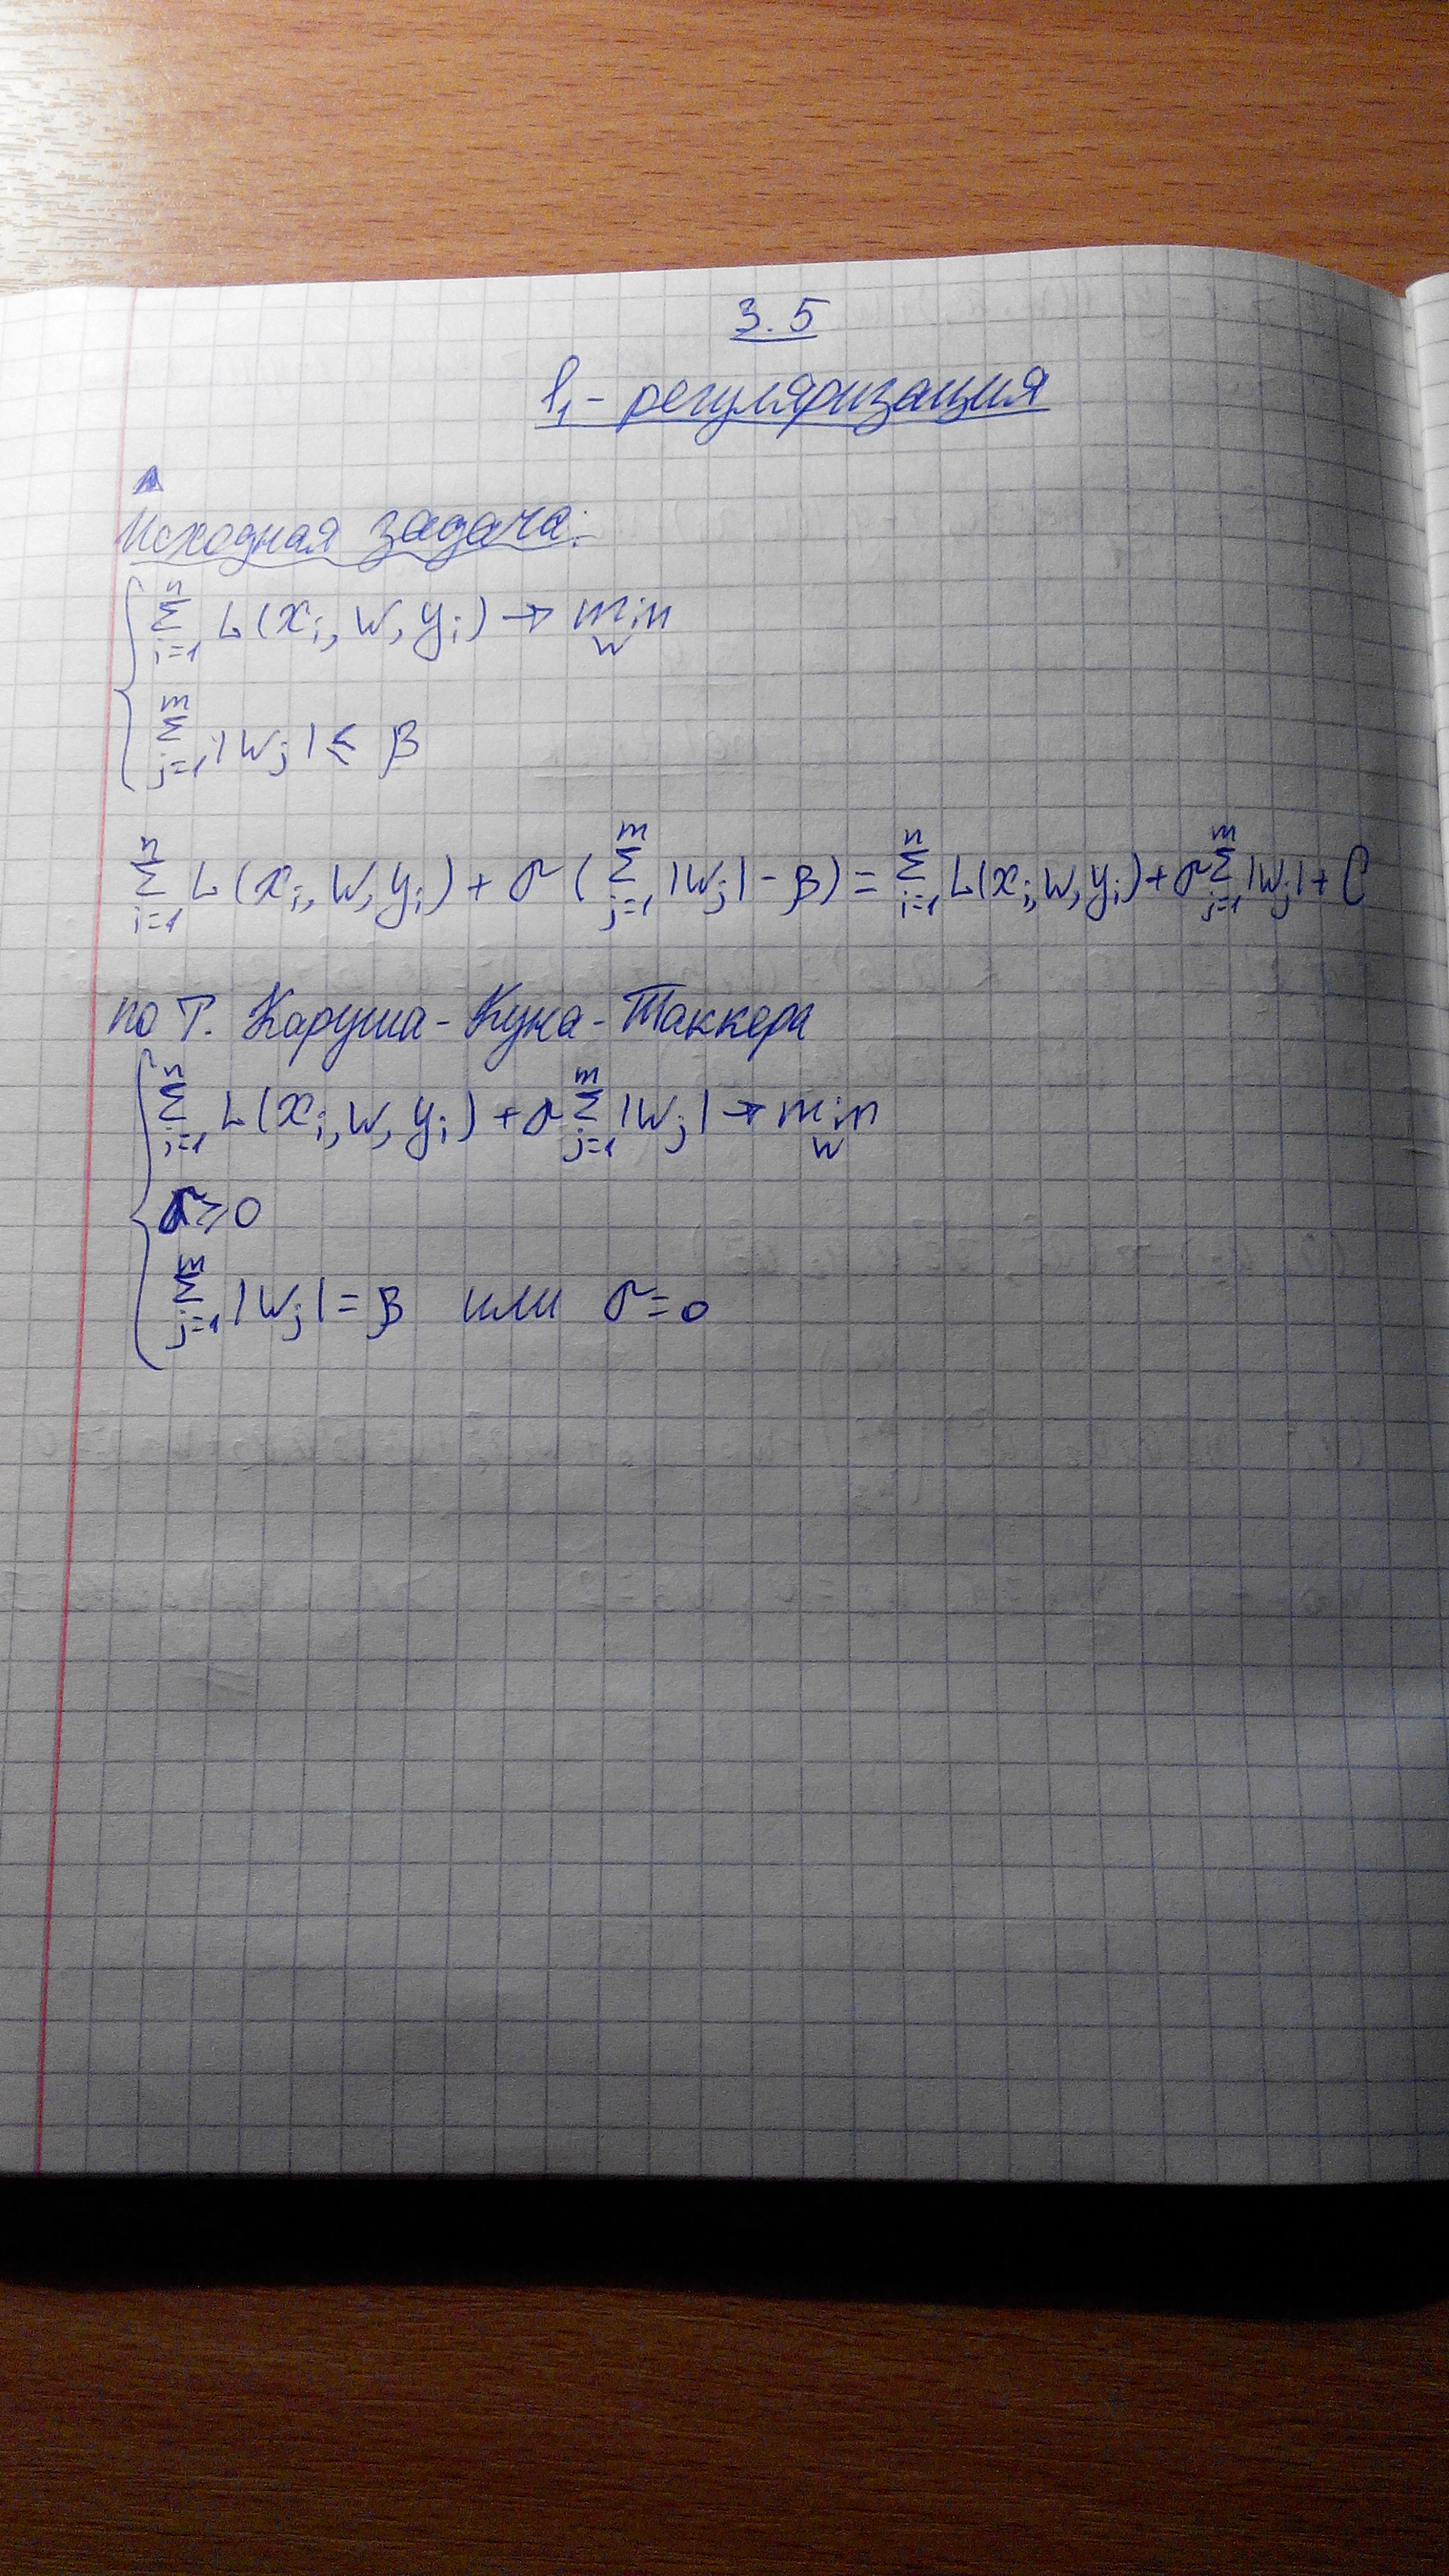 3.5
l₁ - регуляризация
Исходная задача:
{ ∑_{i=1}^{n} L(x_i, w, y_i) → min_w
∑_{j=1}^{m} |w_j| ≤ β
∑_{i=1}^{n} L(x_i, w, y_i) + σ(∑_{j=1}^{m} |w_j| - β) = ∑_{i=1}^{n} L(x_i, w, y_i) + σ∑_{j=1}^{m} |w_j| + C
по Т. Каруша - Куна - Таккера
{ ∑_{i=1}^{n} L(x_i, w, y_i) + σ∑_{j=1}^{m} |w_j| → min_w
σ ≥ 0
∑_{j=1}^{m} |w_j| = β или σ = 0